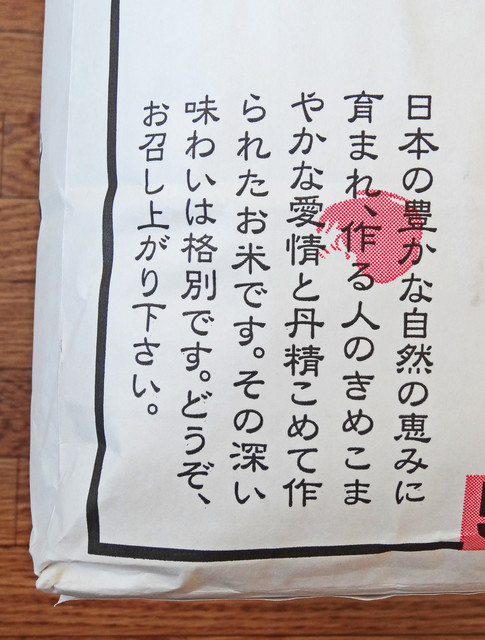 日本の豊かな自然の恵みに
育まれ、作る人のきめこま
やかな愛情と丹精こめて作
られたお米です。その深い
味わいは格別です。どうぞ、
お召し上がり下さい。